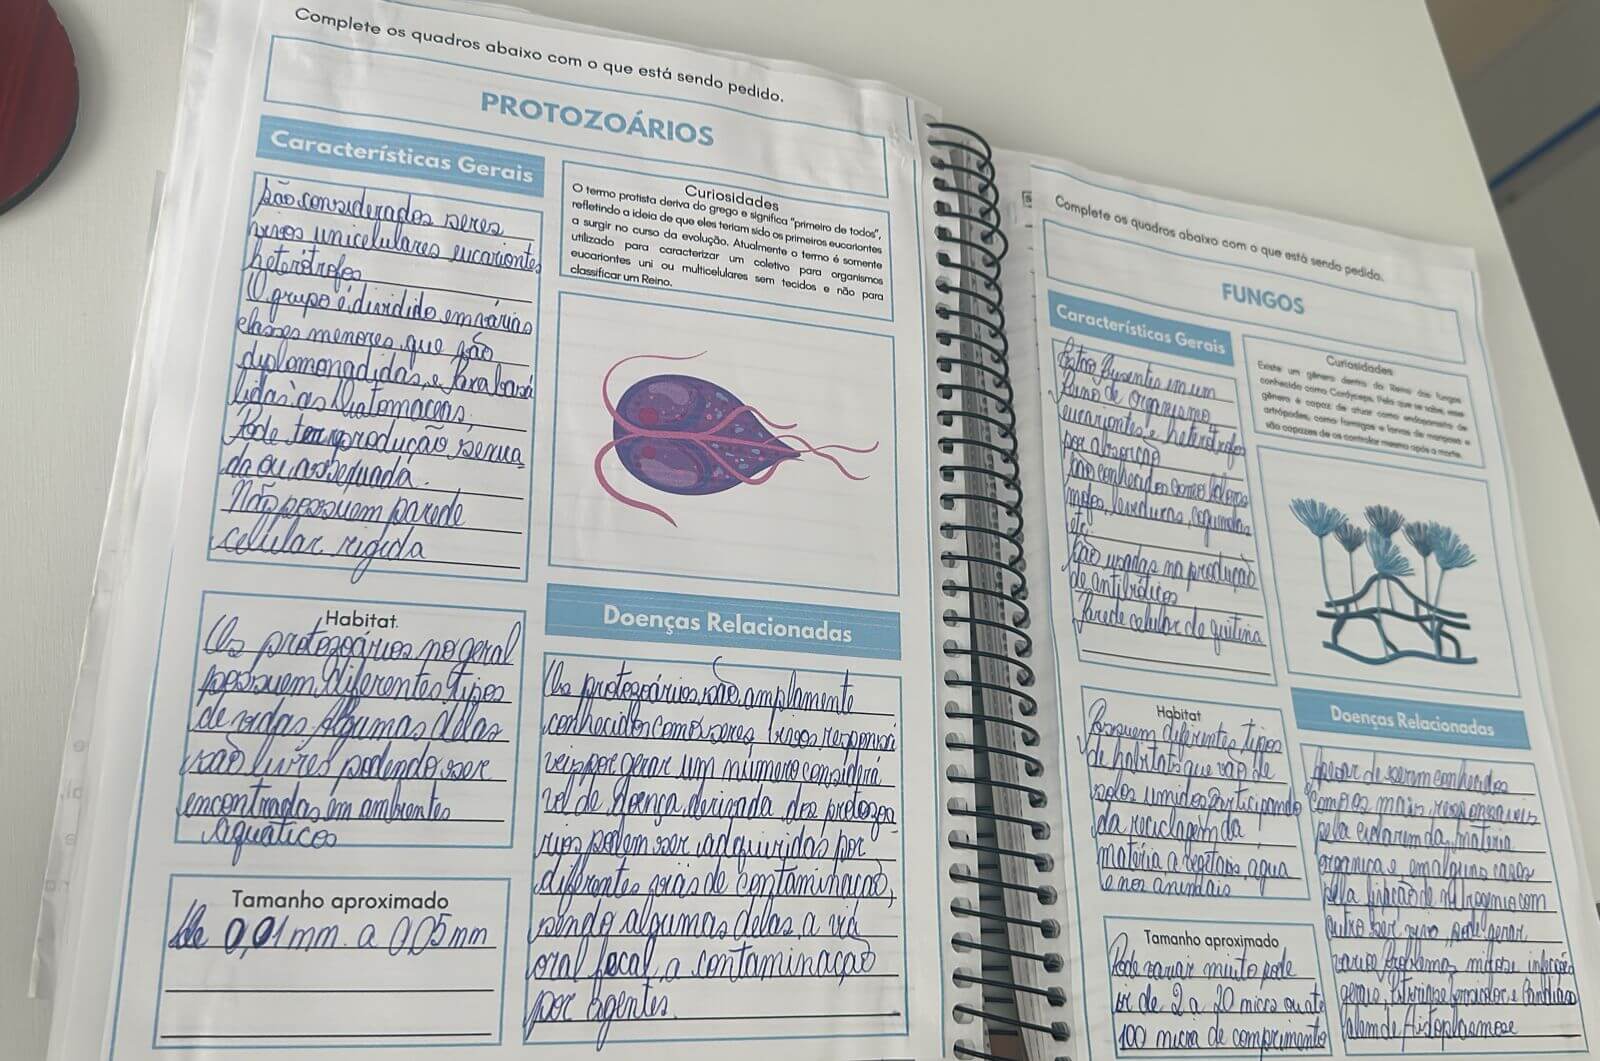 Complete os quadros abaixo com o que está sendo pedido.
PROTOZOÁRIOS
Características Gerais
São considerados seres
vivos unicelulares eucariontes
heterótrofos
O grupo é dividido em várias
classes menores que são
diplomonadidas, e Parabasa
lidas às Diatomaceas,
Pode ter reprodução sexua
da ou assexuada.
Não possuem parede
celular rígida
Curiosidades
O termo protista deriva do grego e significa "primeiro de todos",
refletindo a ideia de que eles teriam sido os primeiros eucariontes
a surgir no curso da evolução. Atualmente o termo é somente
utilizado para caracterizar um coletivo para organismos
eucariontes uni ou multicelulares sem tecidos e não para
classificar um Reino.
Habitat.
Os protozoários no geral
possuem diferentes tipos
de vidas Algumas delas
são livres podendo ser
encontradas em ambientes
Aquáticos
Tamanho aproximado
de 0,01 mm. a 0,05 mm
Doenças Relacionadas
Os protozoários são amplamente
conhecidos como seres vivos responsá
veis por gerar um número considerá
vel de doença derivada dos protozoá
rios podem ser adquiridas por
diferentes de contaminação,
sendo algumas delas a via
oral fecal, a contaminação
por Agentes.
Complete os quadros abaixo com o que está sendo pedido.
FUNGOS
Características Gerais
Estão Presentes em um
Reino de organismo
eucariontes e heterótrofos
por absorção
São conhecidos como
mofos, leveduras, cogumelos
etc.
São usadas na produção
de antibióticos
Parede celular de quitina
Curiosidades
Existe um gênero dentro do Reino dos fungos
conhecido como Cordyceps. Pelo que se sabe, esse
gênero é capaz de atuar como endoparasita de
artrópodes, como formigas e larvas de mariposa e
são capazes de os controlar mesmo após a morte.
Habitat
Possuem diferentes tipos
de habitats que vão de
solos umidos participando
da reciclagem da
matéria a vegetais, água
e nos animais
Tamanho aproximado
Pode variar muito pode
ir de 2 a 20 micra ou até
100 micra de comprimento
Doenças Relacionadas
Apesar de serem conhecidos
mais responsaveis
pela da matéria
organica e em alguns casos
pela fixação de nitrogenio com
outro ser vivo, pode gerar
varios Problemas infecções
gerais, e Candidíase
alem de Histoplasmose